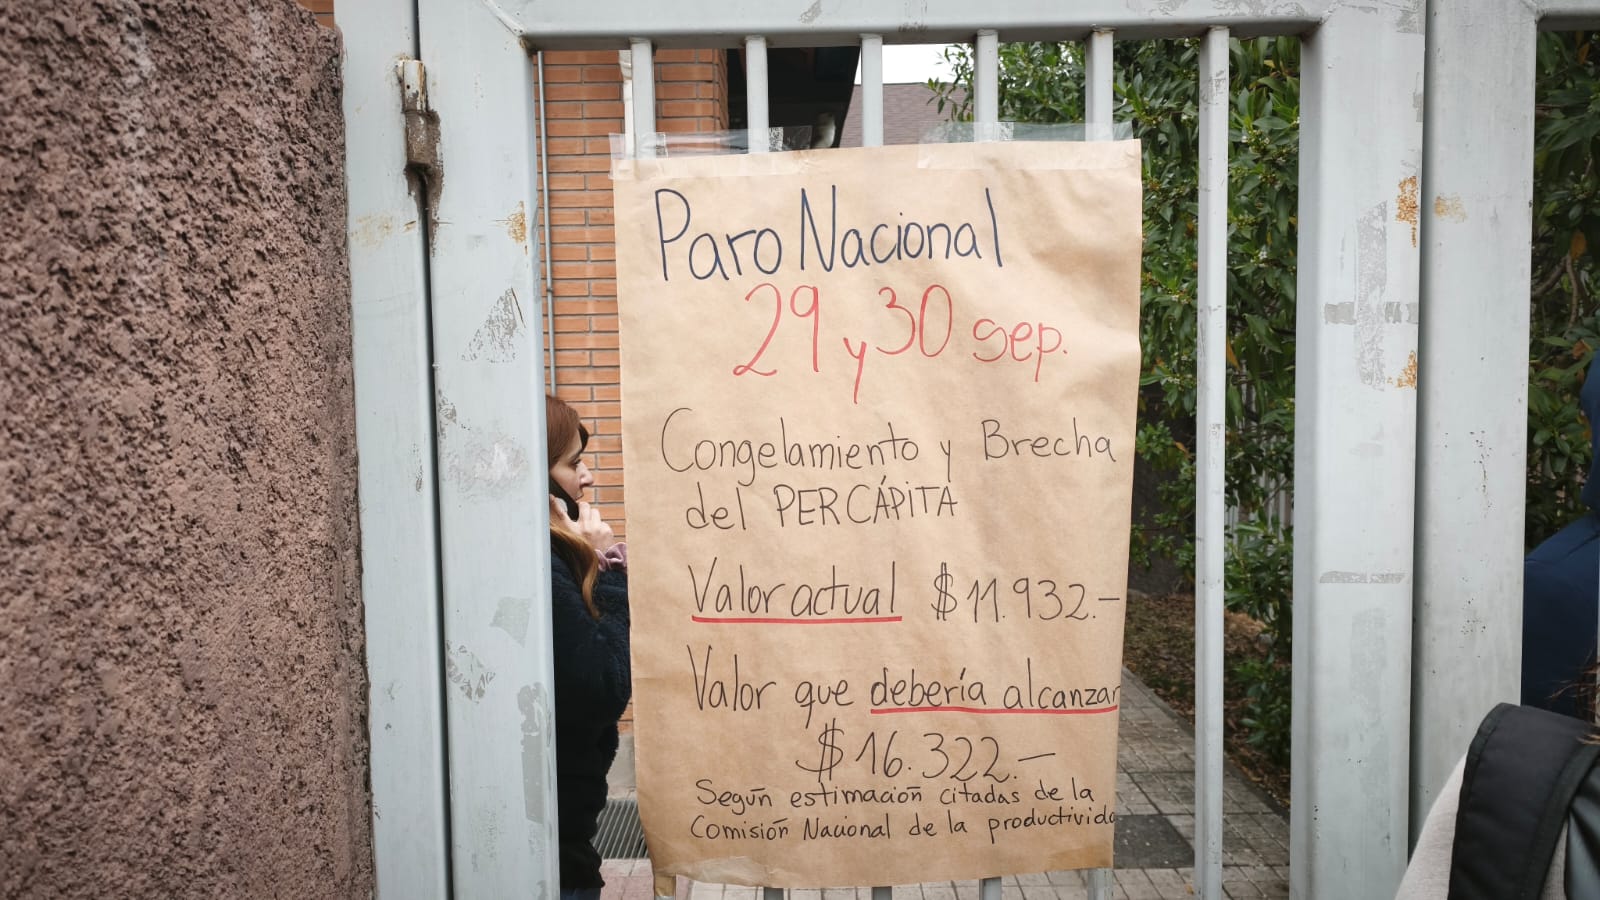 Paro Nacional
29 y 30 sep.
Congelamiento y Brecha
del PERCÁPITA
Valor actual $11.932.-
Valor que debería alcanzar
$16.322.-
Según estimación citadas de la
Comisión Nacional de la productivida